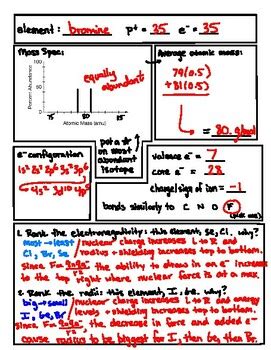 element: bromine p+ = 35 e- = 35
Mass Spec:
Percent Abundance
equally abundant
75 80 85
Atomic Mass (amu)
Average atomic mass:
79(0.5)
+81(0.5)
= 80. g/mol
put a ☆ on most abundant isotope
e- configuration
1s² 2s² 2p⁶ 3s² 3p⁶
4s² 3d¹⁰ 4p⁵
valence e- = 7
core e- = 28
charge/sign of ion = -1
bonds similarly to C N O F
(pick one)
1. Rank the electronegativity: this element, Se, Cl. Why?
most → least / nuclear charge increases L to R and
Cl, Br, Se / levels + shielding increases top to bottom.
Since F= the ability to draw in an e- increases
to the top right where nuclear force is at a max.
2. Rank the radii: this element, I, Ge. Why?
big → small / nuclear charge increases L to R and energy
I, Ge, Br / levels + shielding increases top to bottom.
Since F= the decrease in force and added e-
cause radius to be biggest for I, then Ge, then Br.